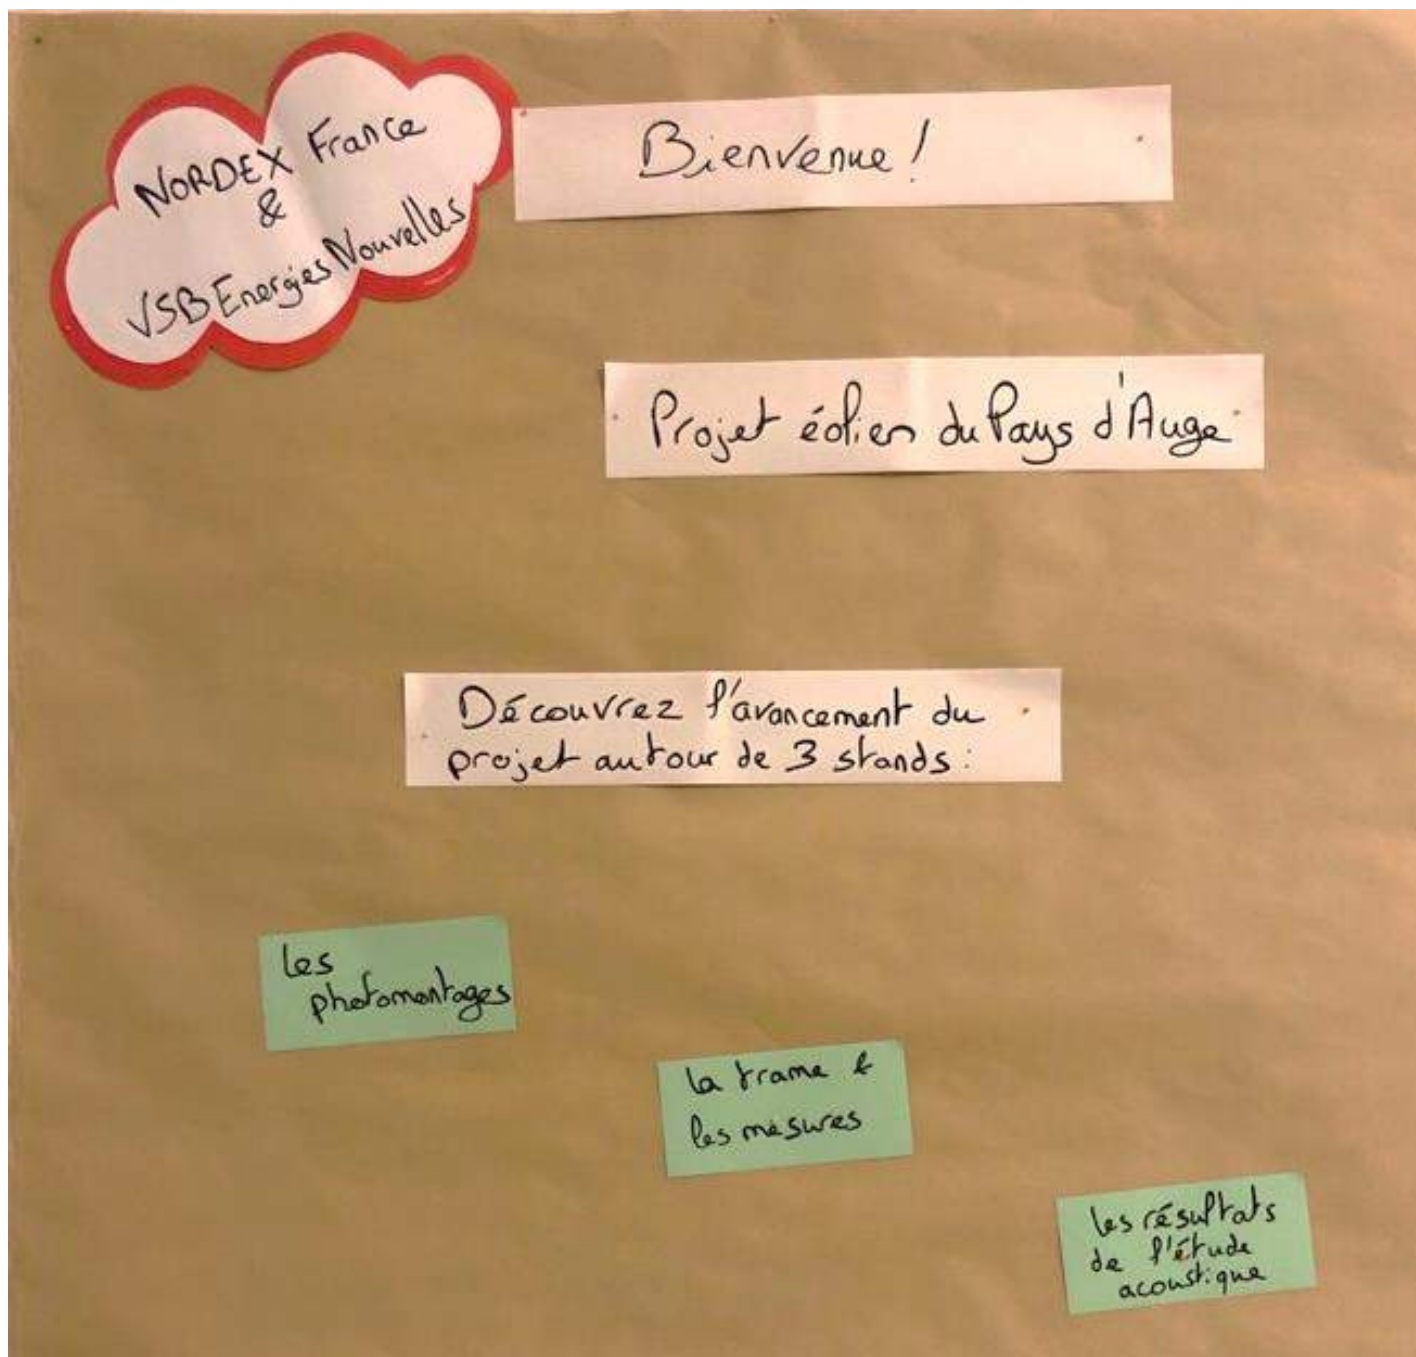 NORDEX France
&
VSB Energies Nouvelles
Bienvenue !
Projet éolien du Pays d'Auge
Découvrez l'avancement du
projet autour de 3 stands :
les
photomontages
la trame &
les mesures
les résultats
de l'étude
acoustique